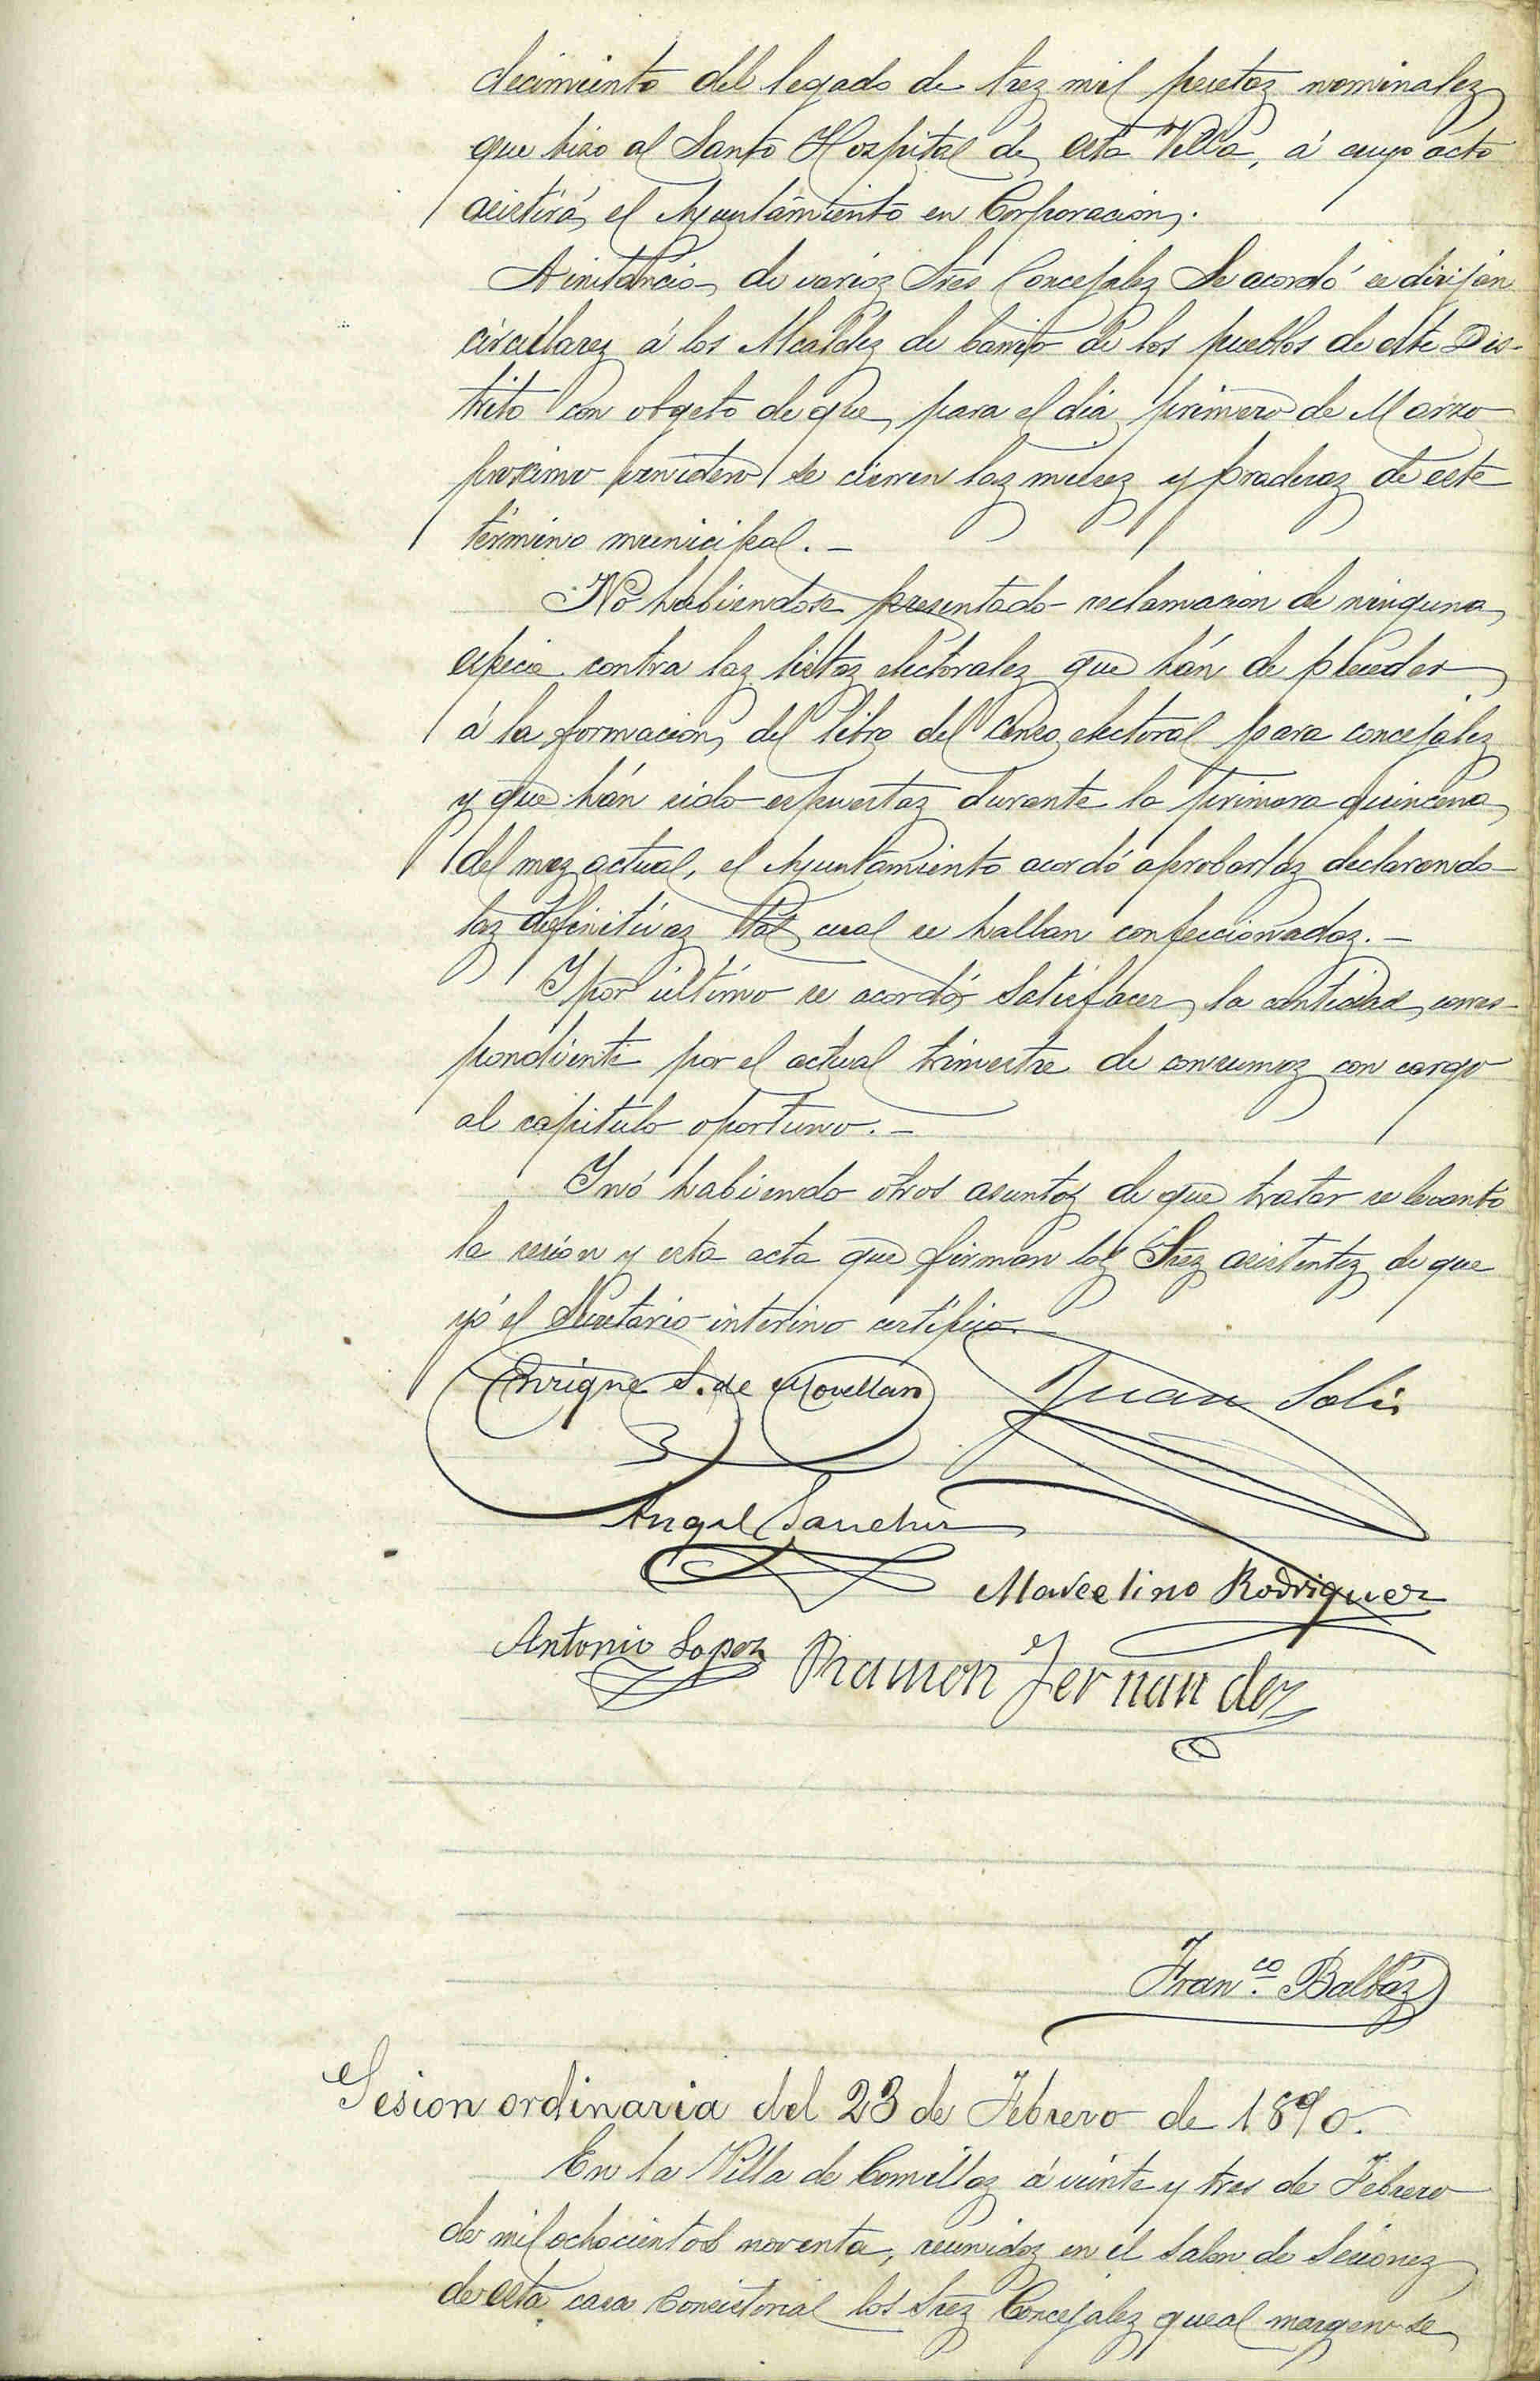 decimiento del legado de tres mil pesetas nominales
que hizo al Santo Hospital de esta Villa, á cuyo acto
asistirá el Ayuntamiento en Corporacion.
A instancia de varios Sres Concejales Se acordó se dirijan
circulares á los Alcaldes de barrio de los pueblos de este Dis-
trito con objeto de que para el dia primero de Marzo
proximo venidero se cierren las mieses y praderas de este
término municipal. -
No habiendose presentado reclamacion de ninguna
especie contra las listas electorales que hán de preceder
á la formacion del libro del censo electoral para concejales
y que hán sido espuestas durante la primera quincena
del mes actual, el Ayuntamiento acordó aprobarlas declarando
las definitivas tal cual se hallan confeccionadas. -
Y por último se acordó satisfacer la cantidad corres-
pondiente por el actual trimestre de consumos con cargo
al capitulo oportuno. -
Y nó habiendo otros asuntos de que tratar se levantó
la sesion y esta acta que firman los Sres asistentes de que
yó el Secretario interino certifico. -
Enrique S. de Movellan Juan Solis
Angel Sanchez
Marcelino Rodriguez
Antonio Lopez Ramon Fernandez
Fran.co Balbás
Sesion ordinaria del 23 de Febrero de 1890.
En la Villa de Comillas á veinte y tres de Febrero
de mil ochocientos noventa, reunidos en el Salon de Sesiones
de esta casa Consistorial los Sres Concejales que al margen se